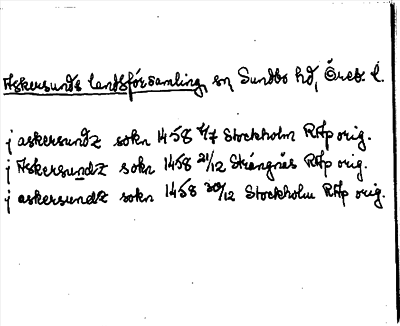 Askersunds landsförsamling, sn, Sundbo hd, Öreb. l.
j askersundz sokn 1458 4/7 Stockholm RAp orig.
j Askersundz sokn 1458 21/12 Strängnäs RAp orig.
j askersundz sokn 1458 30/12 Stockholm RAp orig.